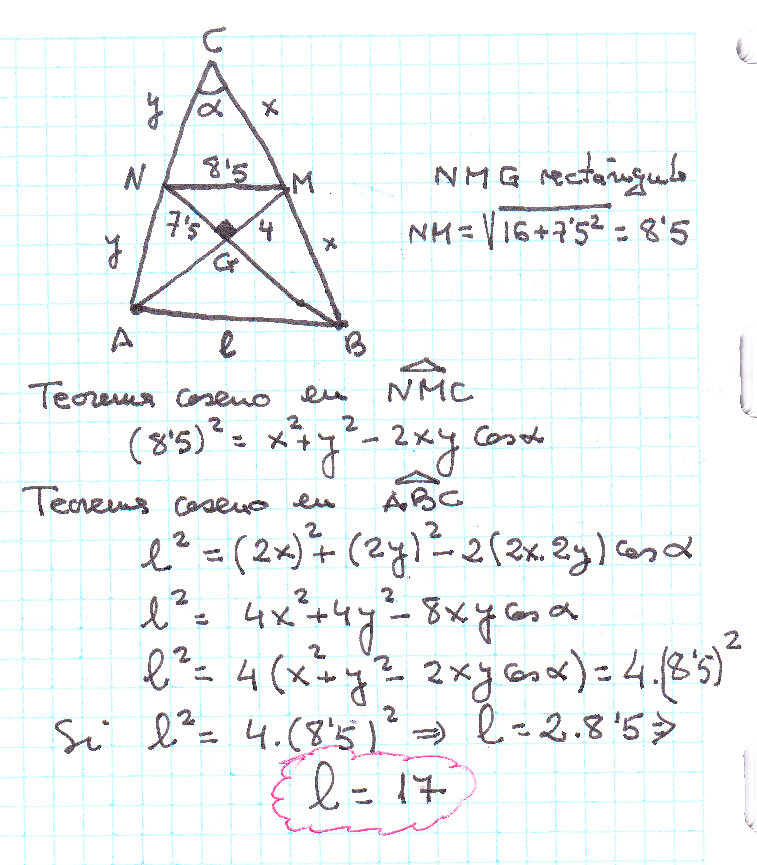 C
y α x
N 8'5 M
7'5 4
y G x
A l B
NMG rectángulo
NM = √16+7'5² = 8'5
Teorema coseno en NMC
(8'5)² = x²+y²-2xy cosα
Teorema coseno en ABC
l² = (2x)²+(2y)²-2(2x.2y) cosα
l² = 4x²+4y²-8xy cosα
l² = 4(x²+y²-2xy cosα) = 4.(8'5)²
Si l² = 4.(8'5)² ⇒ l = 2.8'5 ⇒
l = 17